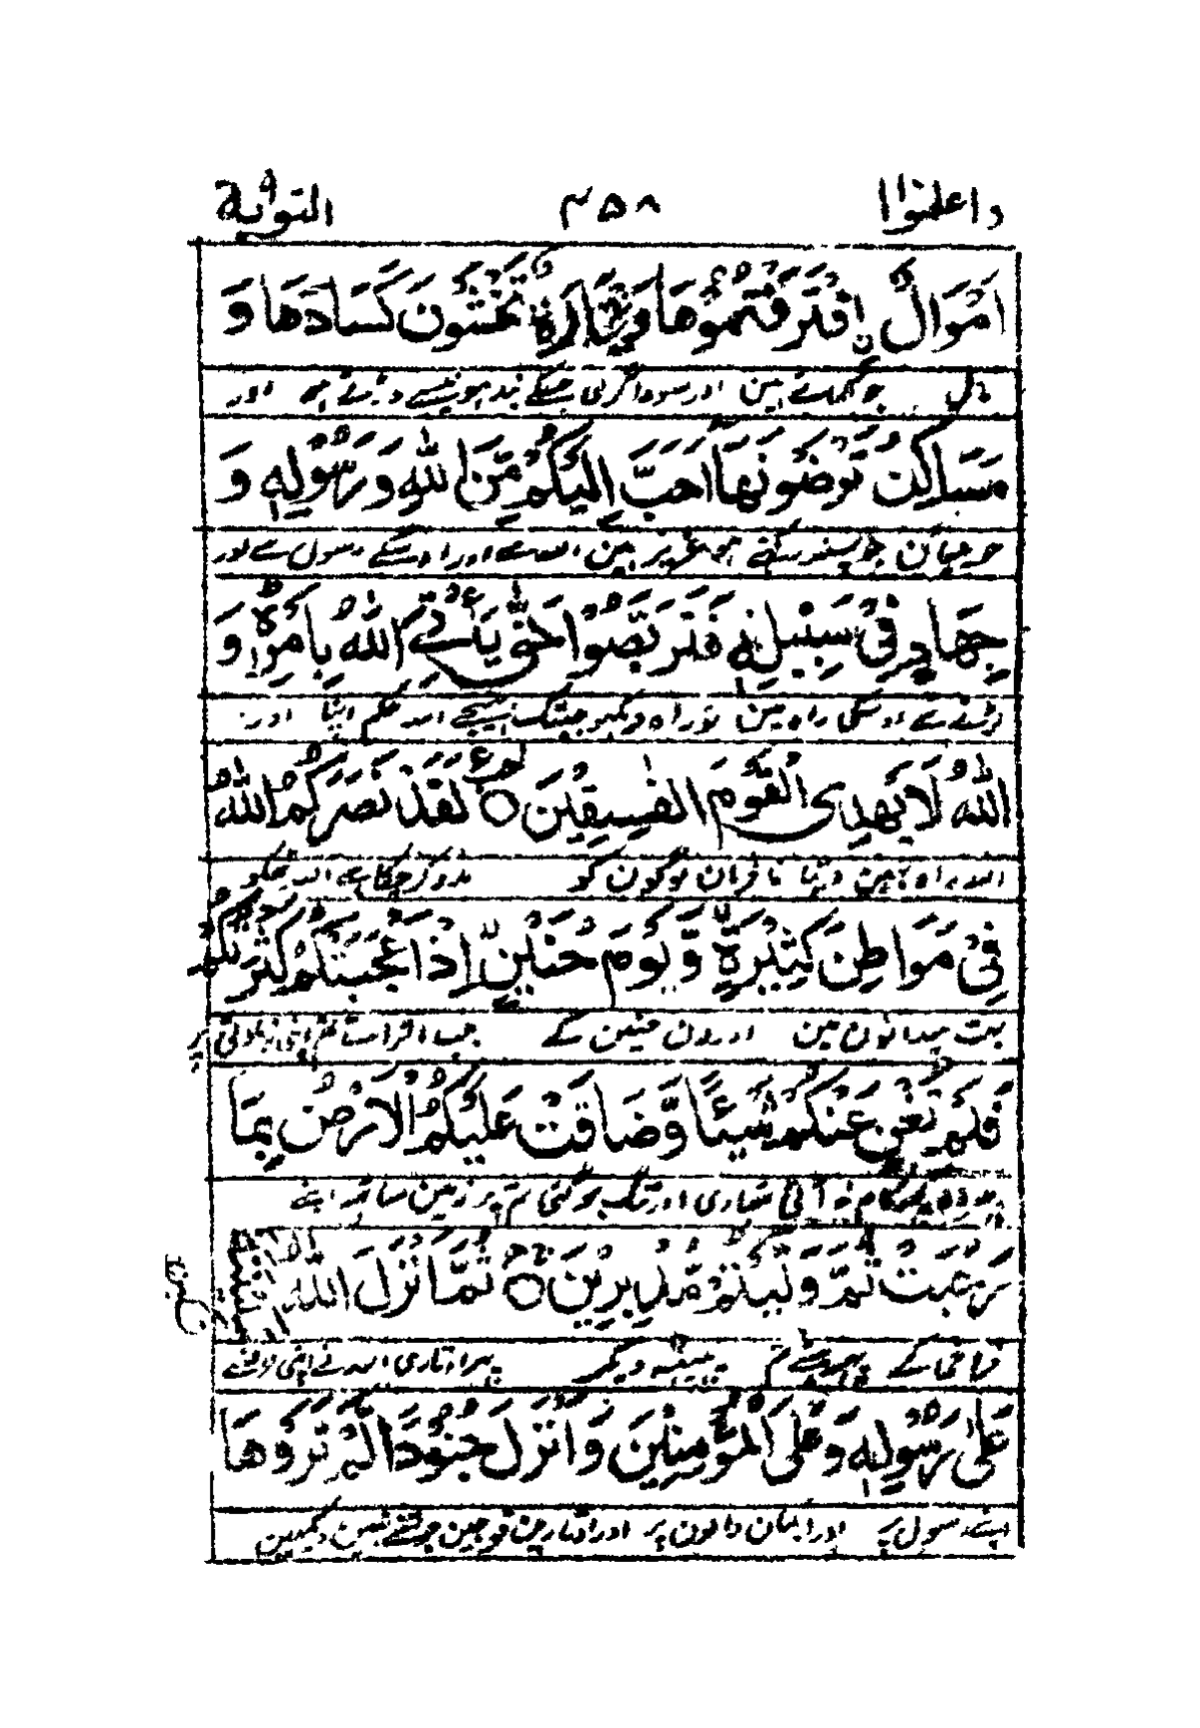 واعلموا ۳۵۸ التوبة ۹
اَمْوَالُ ۨاقْتَرَفْتُمُوْهَا وَتِجَارَةٌ تَخْشَوْنَ كَسَادَهَا وَ
مال جو کمائے ہین اور سوداگری جسکے بند ہونیسے ڈرتے ہو اور
مَسٰكِنُ تَرْضَوْنَهَا اَحَبَّ اِلَيْكُمْ مِّنَ اللّٰهِ وَرَسُوْلِهٖ وَ
حویلیان جو پسند رکھتے ہو عزیز ہین اللہ سے اور اوسکے رسول سے اور
جِهَادٍ فِيْ سَبِيْلِهٖ فَتَرَبَّصُوْا حَتّٰى يَاْتِيَ اللّٰهُ بِاَمْرِهٖ وَ
لڑنے سے اوسکی راہ مین تو راہ دیکھو جبتک بھیجے اللہ حکم اپنا اور
اللّٰهُ لَا يَهْدِى الْقَوْمَ الْفٰسِقِيْنَ ○ لَقَدْ نَصَرَكُمُ اللّٰهُ
اللہ راہ نہین دیتا نافرمان لوگون کو مدد کرچکا ہے اللہ تمکو
فِيْ مَوَاطِنَ كَثِيْرَةٍ وَّيَوْمَ حُنَيْنٍ اِذْ اَعْجَبَتْكُمْ كَثْرَتُكُمْ
بہت میدانون مین اور دن حنین کے جب اترائے تم اپنی زیادتی پر
فَلَمْ تُغْنِ عَنْكُمْ شَيْـًٔا وَّضَاقَتْ عَلَيْكُمُ الْاَرْضُ بِمَا
پھر وہ کچھ کام نہ آئی تمھاری اور تنگ ہوگئی تم پر زمین ساتھ اپنے
رَحُبَتْ ثُمَّ وَلَّيْتُمْ مُّدْبِرِيْنَ ○ ثُمَّ اَنْزَلَ اللّٰهُ سَكِيْنَتَهٗ
فراخی کے پھر ہٹے تم پیٹھ دیکر پھر اوتاری اللہ نے اپنی طرف سے
عَلٰى رَسُوْلِهٖ وَعَلَى الْمُؤْمِنِيْنَ وَاَنْزَلَ جُنُوْدًا لَّمْ تَرَوْهَا
اپنے رسول پر اور ایمان والون پر اور اتارین فوجین جو تمنے نہین دیکھین